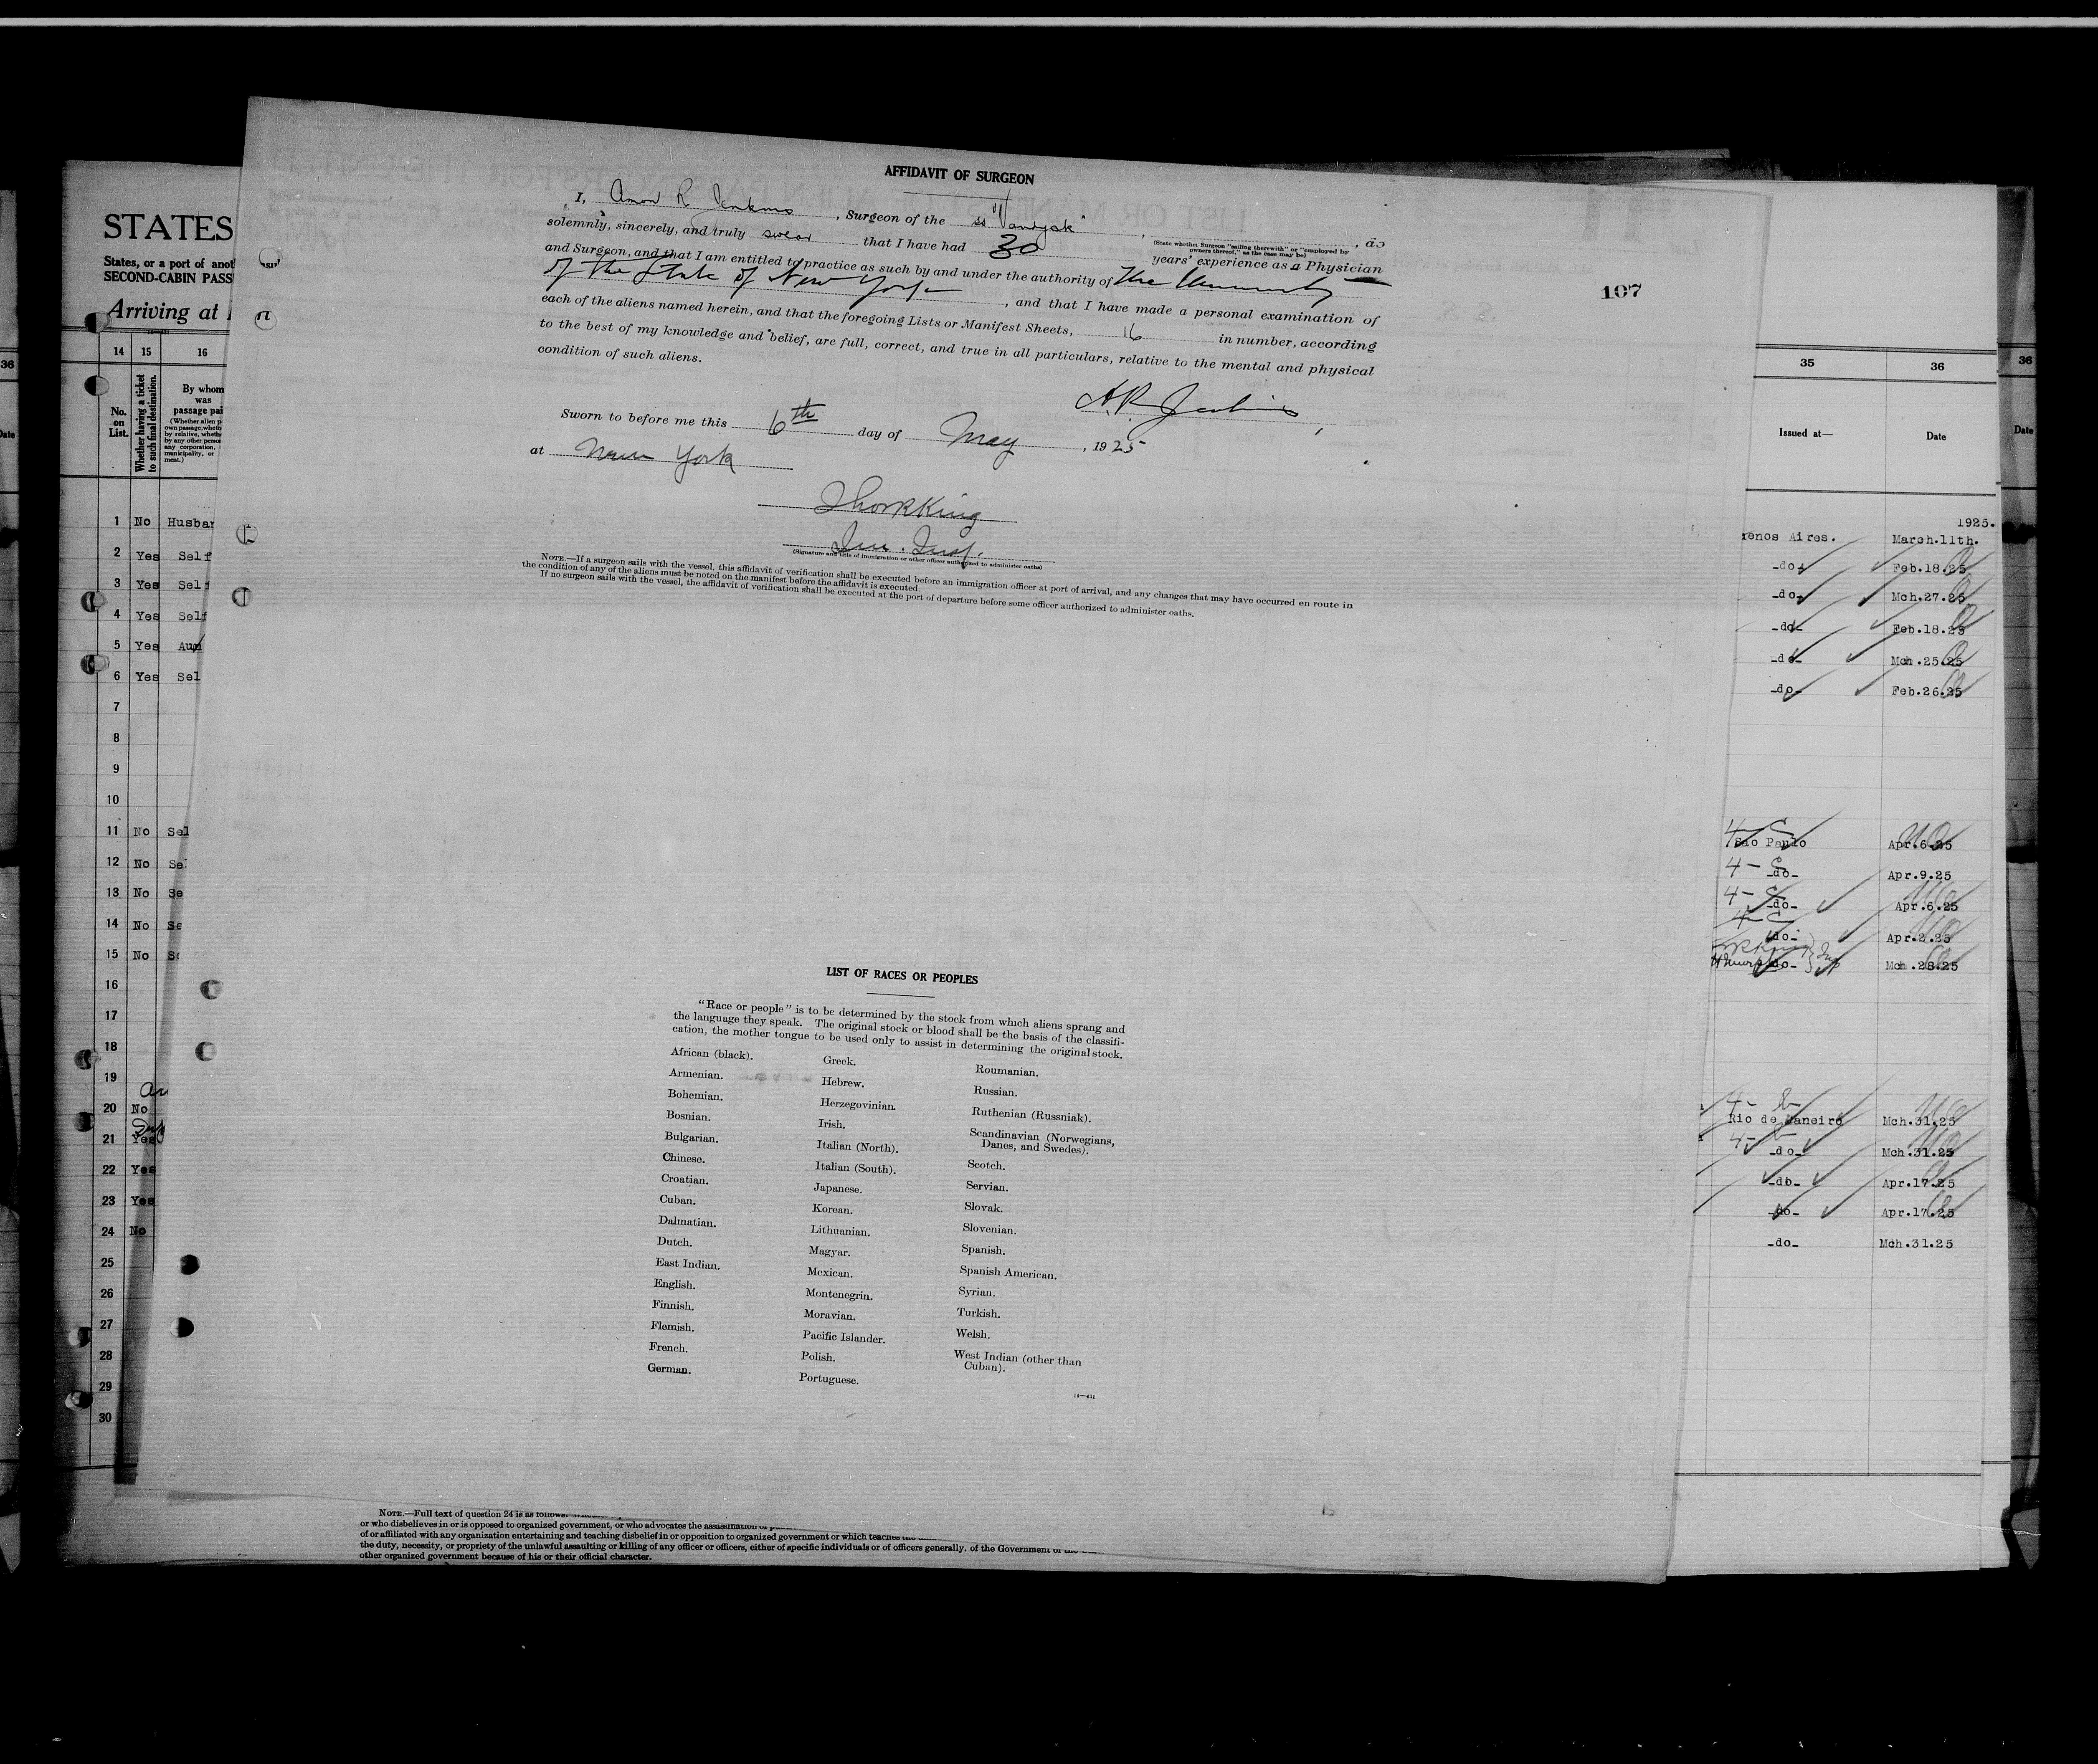 AFFIDAVIT OF SURGEON
I, Amor R Jenkins, Surgeon of the ss "Vandyck", do
(State whether Surgeon "sailing therewith" or "employed by owners thereof," as the case may be)
solemnly, sincerely, and truly swear that I have had 30 years' experience as a Physician
and Surgeon, and that I am entitled to practice as such by and under the authority of The University
of the State of New York, and that I have made a personal examination of
each of the aliens named herein, and that the foregoing Lists or Manifest Sheets, 16 in number, according
to the best of my knowledge and belief, are full, correct, and true in all particulars, relative to the mental and physical
condition of such aliens.
A.R. Jenkins
Sworn to before me this 6th day of May, 1925
at New York
(Signature and title of immigration or other officer authorized to administer oaths)
NOTE.—If a surgeon sails with the vessel, this affidavit of verification shall be executed before an immigration officer at port of arrival, and any changes that may have occurred en route in
the condition of any of the aliens must be noted on the manifest before the affidavit is executed.
If no surgeon sails with the vessel, the affidavit of verification shall be executed at the port of departure before some officer authorized to administer oaths.
107
LIST OF RACES OR PEOPLES
"Race or people" is to be determined by the stock from which aliens sprang and
the language they speak. The original stock or blood shall be the basis of the classifi-
cation, the mother tongue to be used only to assist in determining the original stock.
African (black).
Armenian.
Bohemian.
Bosnian.
Bulgarian.
Chinese.
Croatian.
Cuban.
Dalmatian.
Dutch.
East Indian.
English.
Finnish.
Flemish.
French.
German.
Greek.
Hebrew.
Herzegovinian.
Irish.
Italian (North).
Italian (South).
Japanese.
Korean.
Lithuanian.
Magyar.
Mexican.
Montenegrin.
Moravian.
Pacific Islander.
Polish.
Portuguese.
Roumanian.
Russian.
Ruthenian (Russniak).
Scandinavian (Norwegians,
Danes, and Swedes).
Scotch.
Servian.
Slovak.
Slovenian.
Spanish.
Spanish American.
Syrian.
Turkish.
Welsh.
West Indian (other than
Cuban).
STATES
States, or a port of anot
SECOND-CABIN PASS
Arriving at
14 15 16
No.
on
List.
Whether having a ticket
to such final destination.
By whom
was
passage pai
1 No Husban
2 Yes Self
3 Yes Self
4 Yes Self
5 Yes Aun
6 Yes Sel
7
8
9
10
11 No Sel
12 No Se
13 No Se
14 No Se
15 No Se
16
17
18
19
20 No
21 Yes
22 Yes
23 Yes
24 No
25
26
27
28
29
30
35 36
Issued at— Date
1925.
enos Aires. March.11th.
-do- Feb.18.25
-do- Mch.27.25
-do- Feb.18.25
-do- Mch.25.25
-do- Feb.26.25
4 - C
Sao Paulo Apr.6.25
4 - C
-do- Apr.9.25
4 - C
-do- Apr.6.25
4 - C
-do- Apr.2.25
-do- Mch.28.25
Rio de Janeiro Mch.31.25
-do- Mch.31.25
-do- Apr.17.25
-do- Apr.17.25
-do- Mch.31.25
36
Date
36
Date
NOTE.—Full text of question 24 is as follows:
or who disbelieves in or is opposed to organized government, or who advocates the assassination of
of or affiliated with any organization entertaining and teaching disbelief in or opposition to organized government or which teaches
the duty, necessity, or propriety of the unlawful assaulting or killing of any officer or officers, either of specific individuals or of officers generally. of the Government
other organized government because of his or their official character.